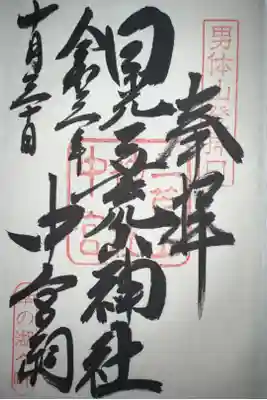 奉拝
日光二荒山神社
中宮祠
令和三年
十月三十日
男体山登拝口